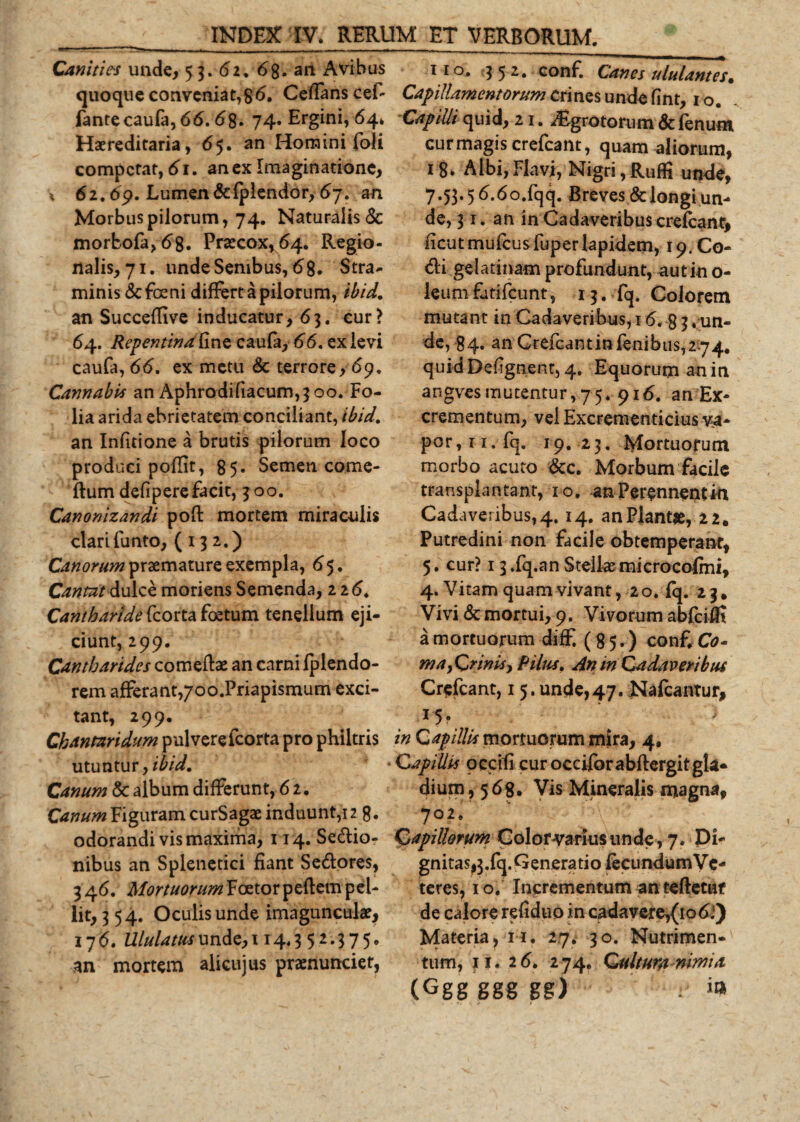 INDEX IV. RERUM ET VERBORUM.
Canities unde, 53. 62. 68. an Avibus
quoque conveniat, 86. Ceſſans ceſ-
ſante cauſa, 66. 68. 74. Ergini, 64.
Hæreditaria, 65. an Homini ſoli
competat, 61. an ex Imaginatione,
62. 69. Lumen & ſplendor, 67. an
Morbus pilorum, 74. Naturalis &
morboſa, 68. Præcox, 64. Regio-
nalis, 71. unde Senibus, 68. Stra-
minis & fœni differt à pilorum, ibid.
an Succeſſive inducatur, 63. cur?
64. Repentina ſine cauſa, 66. ex levi
cauſa, 66. ex metu & terrore, 69.
Cannabis an Aphrodiſiacum, 300. Fo-
lia arida ebrietatem conciliant, ibid.
an Inſitione à brutis pilorum loco
produci poſſit, 85. Semen come-
ſtum deſipere facit, 300.
Canonizandi poſt mortem miraculis
clari ſunto, (132.)
Canorum præmature exempla, 65.
Cantat dulcè moriens Semenda, 226.
Cantharide ſcorta fœtum tenellum eji-
ciunt, 299.
Cantharides comeſtæ an carni ſplendo-
rem afferant, 700. Priapismum exci-
tant, 299.
Chantaridum pulvere ſcorta pro philtris
utuntur, ibid.
Canum & album differunt, 62.
Canum Figuram cur Sagæ induunt, 128.
odorandi vis maxima, 114. Sectio-
nibus an Splenetici fiant Sectores,
346. Mortuorum Fœtor peſtem pel-
lit, 354. Oculis unde imagunculæ,
176. Ululatus unde, 114. 352. 375.
an mortem alicujus prænunciet,
110. 352. conf. Canes ululantes.
Capillamentorum crines unde ſint, 10.
Capilli quid, 21. Ægrotorum & ſenum
cur magis creſcant, quam aliorum,
18. Albi, Flavi, Nigri, Ruffi unde,
7. 53. 56. 60. ſqq. Breves & longi un-
de, 31. an in Cadaveribus creſcant,
ſicut muſcus ſuper lapidem, 19. Co-
cti gelatinam profundunt, aut in o-
leum fatiſcunt, 13. ſq. Colorem
mutant in Cadaveribus, 16. 83. un-
de, 84. an Creſcant in ſenibus, 274.
quid Deſignent, 4. Equorum an in
angves mutentur, 75. 916. an Ex-
crementum, vel Excrementicius va-
por, 11. ſq. 19. 23. Mortuorum
morbo acuto &c. Morbum facile
transplantant, 10. an Perennent in
Cadaveribus, 4. 14. an Plantæ, 22.
Putredini non facile obtemperant,
5. cur? 13. ſq. an Stellæ microcoſmi,
4. Vitam quam vivant, 20. ſq. 23.
Vivi & mortui, 9. Vivorum abſciſſi
à mortuorum diff. (85.) conf. Co-
ma, Crinis, Pilus. An in Cadaveribus
Creſcant, 15. unde, 47. Naſcantur,
15.
in Capillis mortuorum mira, 4.
Capillis occiſi cur occiſor abſtergit gla-
dium, 568. Vis Mineralis magna,
702.
Capillorum Color varius unde, 7. Di-
gnitas, 3. ſq. Generatio ſecundum Ve-
teres, 10. Incrementum an teſtetur
de calore reſiduo in cadavere, (106.)
Materia, 11. 27. 30. Nutrimen-
tum, 11. 26. 274. Cultura nimia
(Ggg ggg gg) in